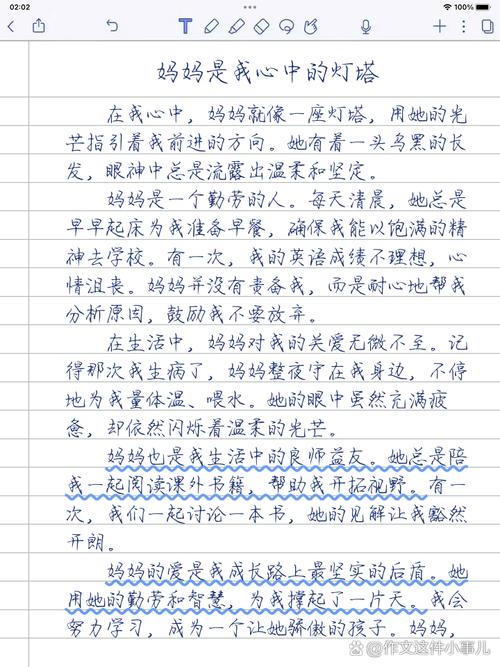 02:02
100%
妈妈是我心中的灯塔
在我心中，妈妈就像一座灯塔，用她的光
芒指引着我前进的方向。她有着一头乌黑的长
发，眼神中总是流露出温柔和坚定。
妈妈是一个勤劳的人。每天清晨，她总是
早早起床为我准备早餐，确保我能以饱满的精
神去学校。有一次，我的英语成绩不理想，心
情沮丧。妈妈并没有责备我，而是耐心地帮我
分析原因，鼓励我不要放弃。
在生活中，妈妈对我的关爱无微不至。记
得那次我生病了，妈妈整夜守在我身边，不停
地为我量体温、喂水。她的眼中虽然充满疲
惫，却依然闪烁着温柔的光芒。
妈妈也是我生活中的良师益友。她总是陪
我一起阅读课外书籍，帮助我开拓视野。有一
次，我们一起讨论一本书，她的见解让我豁然
开朗。
妈妈的爱是我成长路上最坚实的后盾。她
用她的勤劳和智慧，为我撑起了一片天。我会
努力学习，成为一个让她骄傲的孩子。妈妈，
@作文这件小事儿